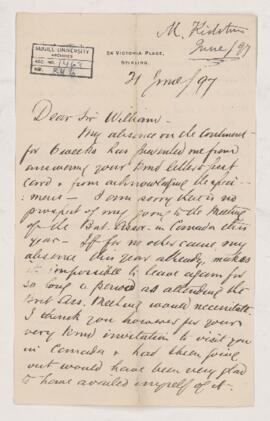 M. Kidston
June/97
McGILL UNIVERSITY
ARCHIVES
ACC. NO. 1463
REF.
24 VICTORIA PLACE,
STIRLING.
21 June/97
Dear Sir William -
My absence on the Continent
for 6 weeks has prevented me from
answering your kind letter & post
card & from acknowledging the speci-
mens - I am sorry there is no
prospect of my going to the Meeting
of the Brit. Assoc. in Canada this
year - If for no other cause my
absence this year already, makes
it impossible to leave again for
so long a period as attending the
Brit Ass. Meeting would necessitate.
I thank you however for your
very kind invitation to visit you
in Canada & had I been going
out would have been very glad
to have availed myself of it -